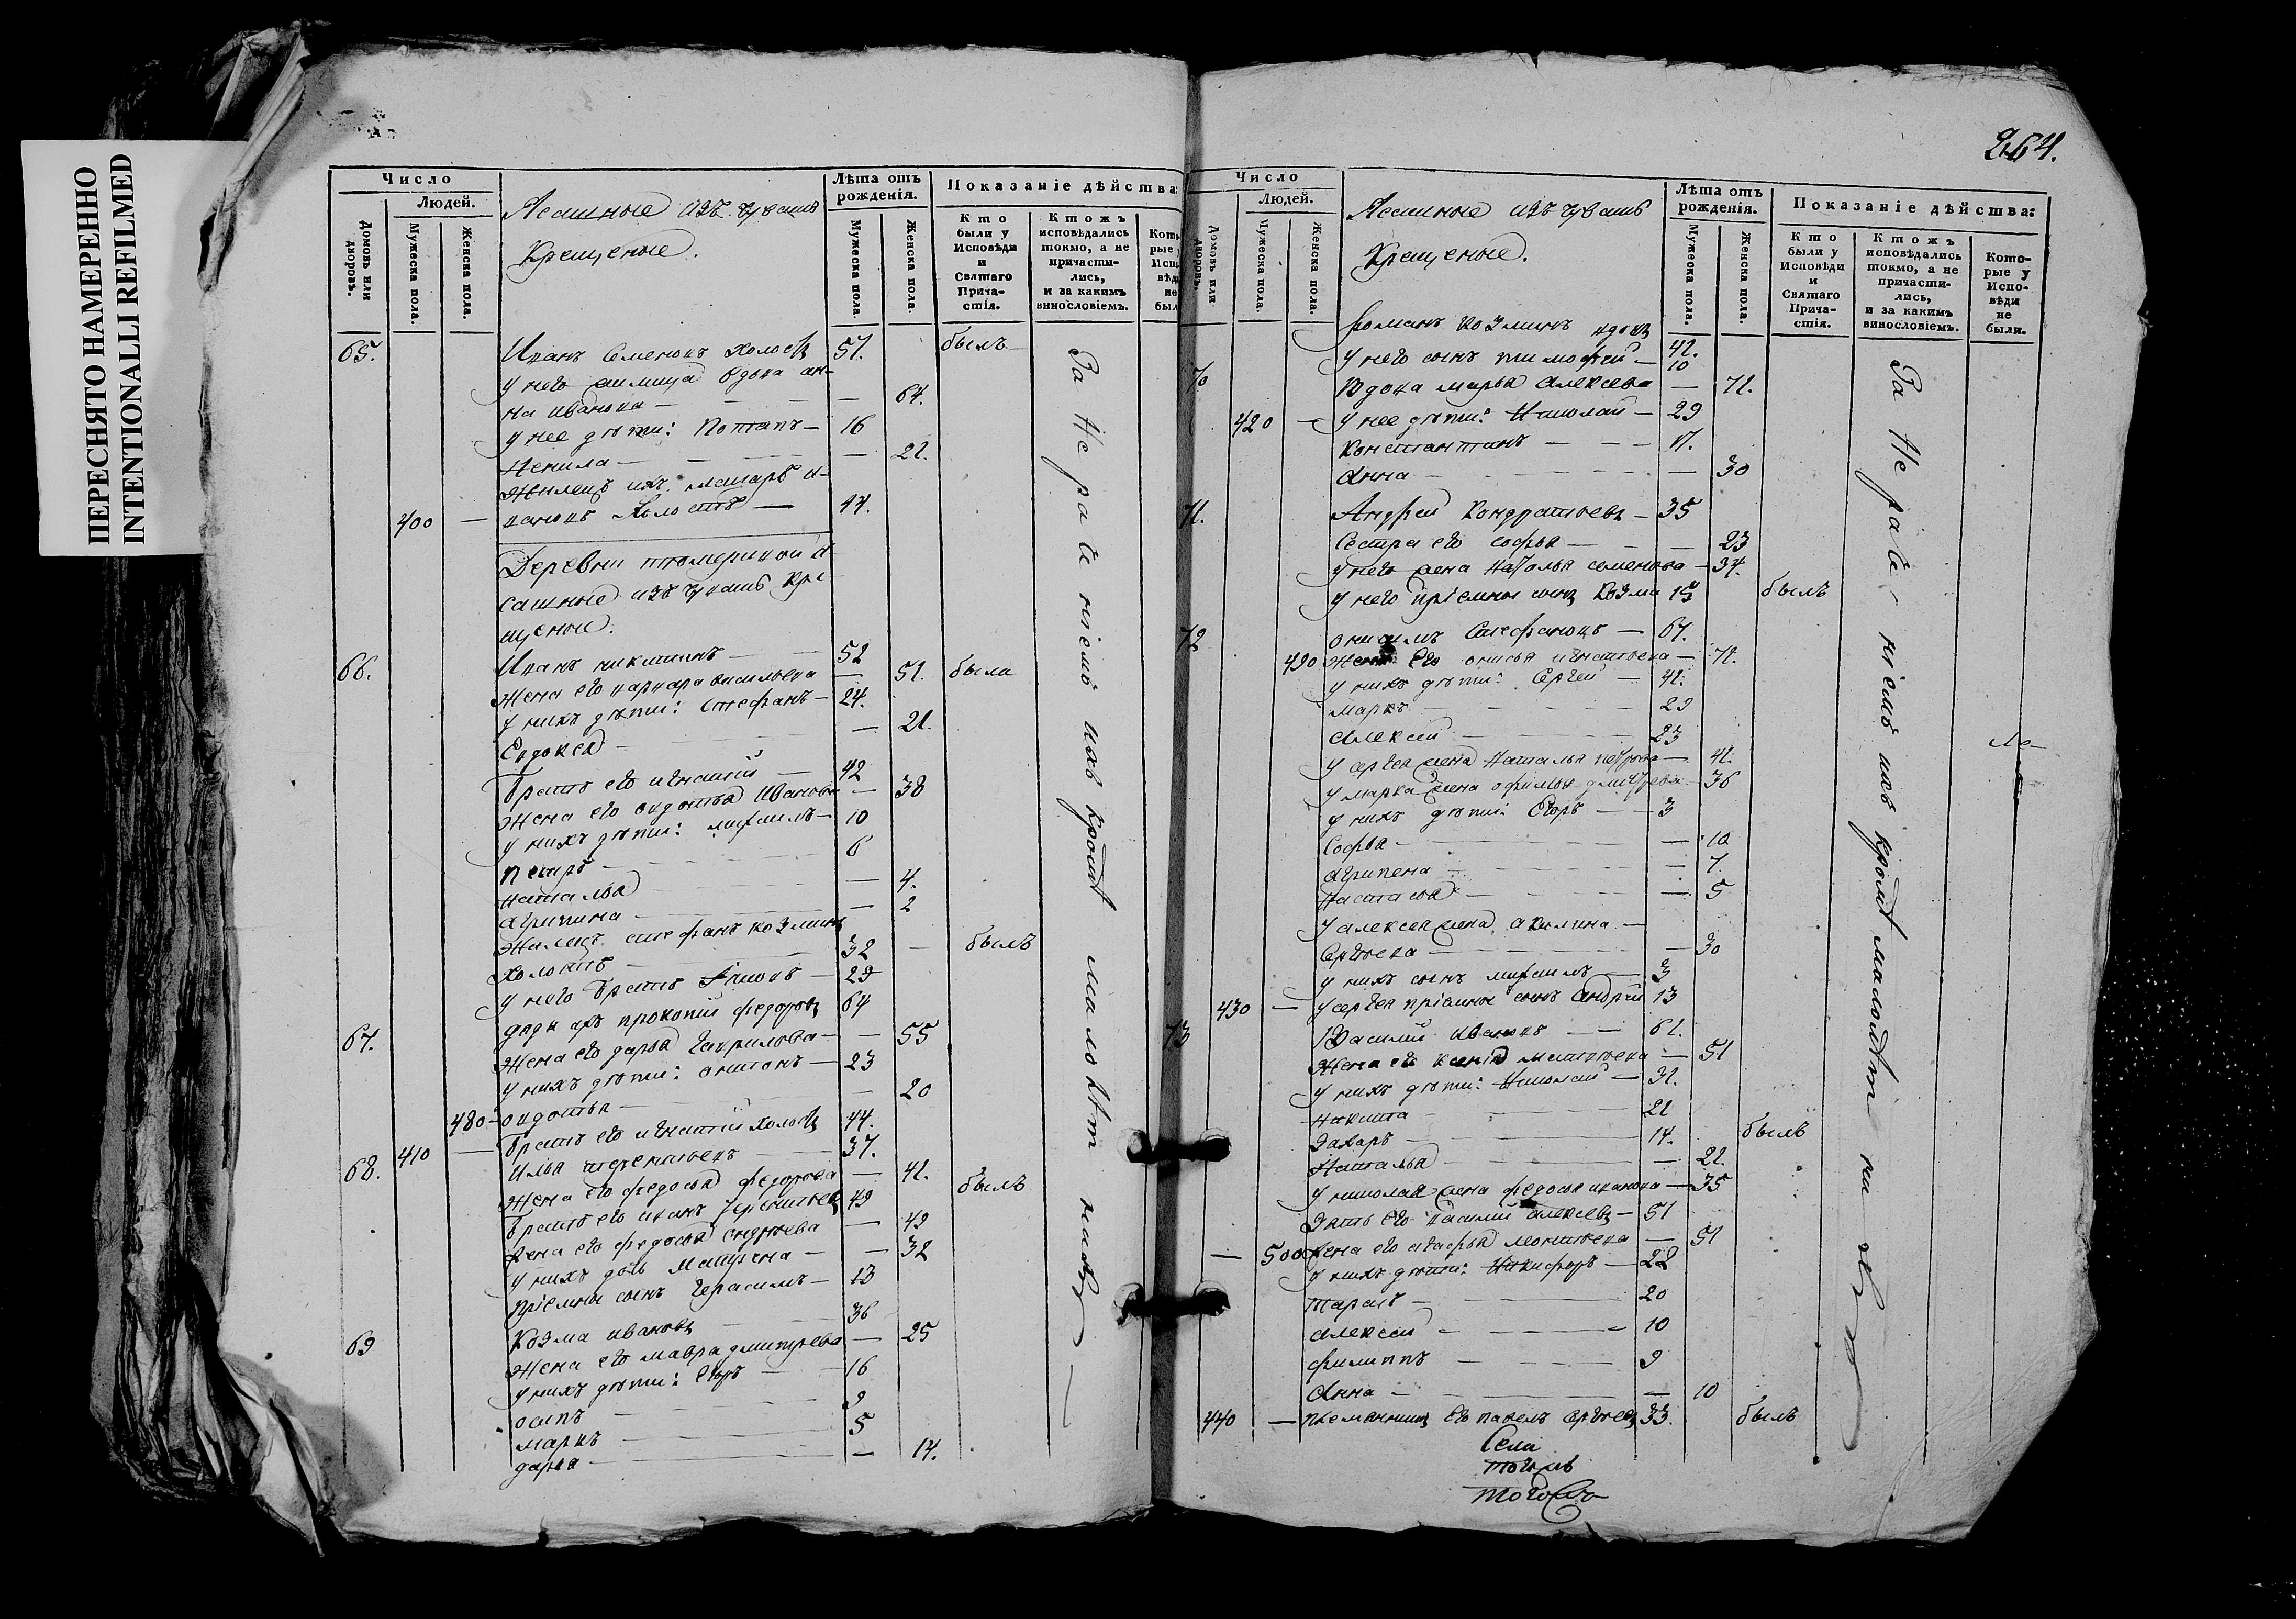 ПЕРЕСНЯТО НАМЕРЕННО
INTENTIONALLI REFILMED
264.
Число
Людей.
Домовъ или дворовъ.
Мужеска пола.
Женска пола.
Ясашные изъ чувашъ
Крещеные.
Лѣта отъ рожденія.
Мужеска пола.
Женска пола.
Показаніе дѣйства:
Кто были у Исповѣди и Святаго Причастія.
Ктожъ исповѣдались токмо, а не причастились, и за какимъ винословіемъ.
65. Иванъ Семеновъ холостъ 57. былъ
вдова ан-
на иванова — — 64.
у нее дѣти: Потапъ — 16
Ненила — — 21.
400 — холостъ — 44.
Деревни
изъ чувашъ кре
щеные.
66. Иванъ никитинъ — 52
Жена его варвара васильева — 51. была
у нихъ дѣти: Стефанъ — 24.
Евдокея — — 21.
Братъ его игнатій — 42
Жена его овдотья Иванова — 38
у нихъ дѣти: михаилъ — 10
петръ — 6
наталья — 4.
агрипина — 2
Жилецъ стефанъ козминъ
холостъ — 32 — былъ
у него братъ — 29
67. дядя ихъ прокопій федоровъ 64
Жена его дарья гаврилова — — 55
у нихъ дѣти: антонъ — 23
480 — овдотья — — 20
410 — Братъ его игнатій холостъ 44.
68. Илья терентьевъ 37.
Жена его федосья федорова — 41.
Братъ его иванъ терентьевъ 49 былъ
Жена его федосья — 49
у нихъ дочь Матрена — — 32
пріемный сынъ герасимъ — 13
69 Козма ивановъ — 36
Жена его мавра дмитрева — 25
у нихъ дѣти: Егоръ — 16
осипъ — 9
маркъ — 5
дарья — — 14.
За нераченіемъ ихъ кромѣ малолѣт
Число
Людей.
Домовъ или дворовъ.
Мужеска пола.
Женска пола.
Ясашные изъ чувашъ
Крещеные.
Лѣта отъ рожденія.
Мужеска пола.
Женска пола.
Показаніе дѣйства:
Кто были у Исповѣди и Святаго Причастія.
Ктожъ исповѣдались токмо, а не причастились, и за какимъ винословіемъ.
Которые у Исповѣди не были.
романъ козминъ вдовъ 42.
у него сынъ тимофей — 10
70 Вдова марья Алексева — 71.
420 — у нее дѣти: Николай — 29
Константинъ — — — 17.
Анна — — 30
71. Андрей Кондратьевъ — 35
Сестра его софья — — 23
у него жена наталья семенова — 34.
у него пріемный сынъ Козма 15 былъ
72 онисимъ Стефановъ — 67.
490 Жена его онисья игнатьева — 71.
у нихъ дѣти: Сергей — 41.
маркъ — 29
алексей — 23
у сергея жена наталья петрова — 41.
у марка жена офимья дмитрева — 36
у нихъ дѣти: Егоръ — 3
Софья — — 10
агрипена — — 7.
настасья — — 5
у алексея жена акилина —
Сергеева — — 30
у нихъ сынъ михаилъ — 3
430 — у сергея пріемный сынъ андрей 13
73 Василій ивановъ — 61.
Жена его ксенія матвеева — 51
у нихъ дѣти: Николай — 31.
никита — 21
Захаръ — 14. былъ
Наталья — — 21.
у николая жена федосья иванова — 35
Зять его василій алексевъ — 51
— 500 Жена его агафья — 51
у нихъ дѣти: Никифоръ — 22
тарасъ — 20
алексей — 10
филиппъ — 9
Анна — — 10
440 — племянникъ его павелъ сергеевъ 33. былъ
За нераченіемъ ихъ кромѣ малолѣт
Села